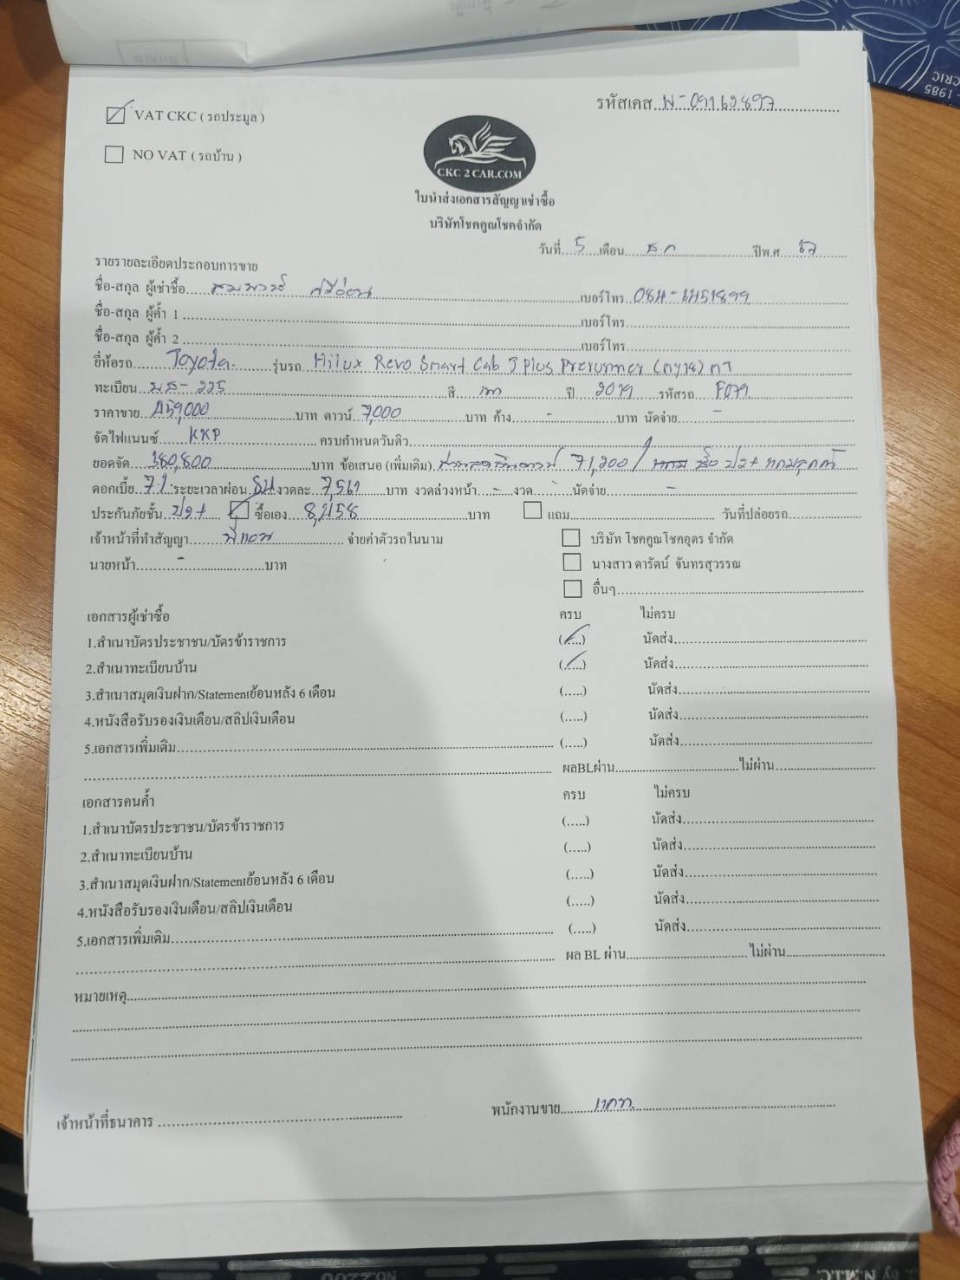 รหัสเคส
VAT CKC ( รถประมูล )
NO VAT ( รถบ้าน )
CKC 2 CAR.COM
ใบนำส่งเอกสารสัญญาเช่าซื้อ
บริษัทโชคคูณโชคจำกัด
วันที่ 5 เดือน ธ.ค ปีพ.ศ
รายรายละเอียดประกอบการขาย
ชื่อ-สกุล ผู้เช่าซื้อ เบอร์โทร
ชื่อ-สกุล ผู้ค้ำ 1 เบอร์โทร
ชื่อ-สกุล ผู้ค้ำ 2 เบอร์โทร
ยี่ห้อรถ Toyota รุ่นรถ Hilux Revo Smart Cab J Plus Prerunner
ทะเบียน สี เทา ปี 2019 รหัสรถ
ราคาขาย 459,000 บาท ดาวน์ 7,000 บาท ค้าง - บาท นัดจ่าย -
จัดไฟแนนซ์ KKP ครบกำหนดวันดิว
ยอดจัด 380,800 บาท ข้อเสนอ (เพิ่มเติม) 71,200 /
ดอกเบี้ย ระยะเวลาผ่อน 84 งวดละ 7,567 บาท งวดล่วงหน้า - งวด - นัดจ่าย -
ประกันภัยชั้น ป2+ ซื้อเอง 8,458 บาท แถม วันที่ปล่อยรถ
เจ้าหน้าที่ทำสัญญา จ่ายค่าตัวรถในนาม บริษัท โชคคูณโชคอุดร จำกัด
นายหน้า - บาท นางสาว ดารัตน์ จันทรสุวรรณ
อื่นๆ
เอกสารผู้เช่าซื้อ ครบ ไม่ครบ
1.สำเนาบัตรประชาชน/บัตรข้าราชการ (.....) นัดส่ง
2.สำเนาทะเบียนบ้าน (.....) นัดส่ง
3.สำเนาสมุดเงินฝาก/Statementย้อนหลัง 6 เดือน (.....) นัดส่ง
4.หนังสือรับรองเงินเดือน/สลิปเงินเดือน (.....) นัดส่ง
5.เอกสารเพิ่มเติม (.....) นัดส่ง
ผลBLผ่าน ไม่ผ่าน
เอกสารคนค้ำ ครบ ไม่ครบ
1.สำเนาบัตรประชาชน/บัตรข้าราชการ (.....) นัดส่ง
2.สำเนาทะเบียนบ้าน (.....) นัดส่ง
3.สำเนาสมุดเงินฝาก/Statementย้อนหลัง 6 เดือน (.....) นัดส่ง
4.หนังสือรับรองเงินเดือน/สลิปเงินเดือน (.....) นัดส่ง
5.เอกสารเพิ่มเติม (.....) นัดส่ง
ผล BL ผ่าน ไม่ผ่าน
หมายเหตุ
เจ้าหน้าที่ธนาคาร พนักงานขาย